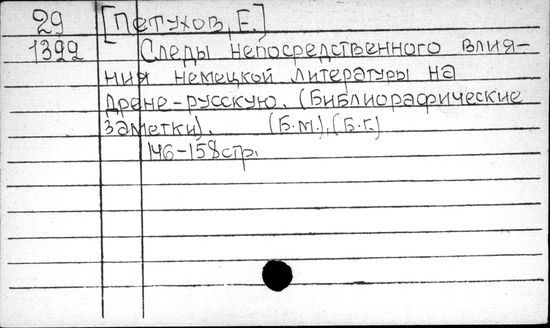 29 [Петухов, Е.]
1392 Следы непосредственного влия-
ния немецкой литературы на
древне-русскую. (Библиографические
заметки). (Б.м.), (Б.г.)
146-158 стр.